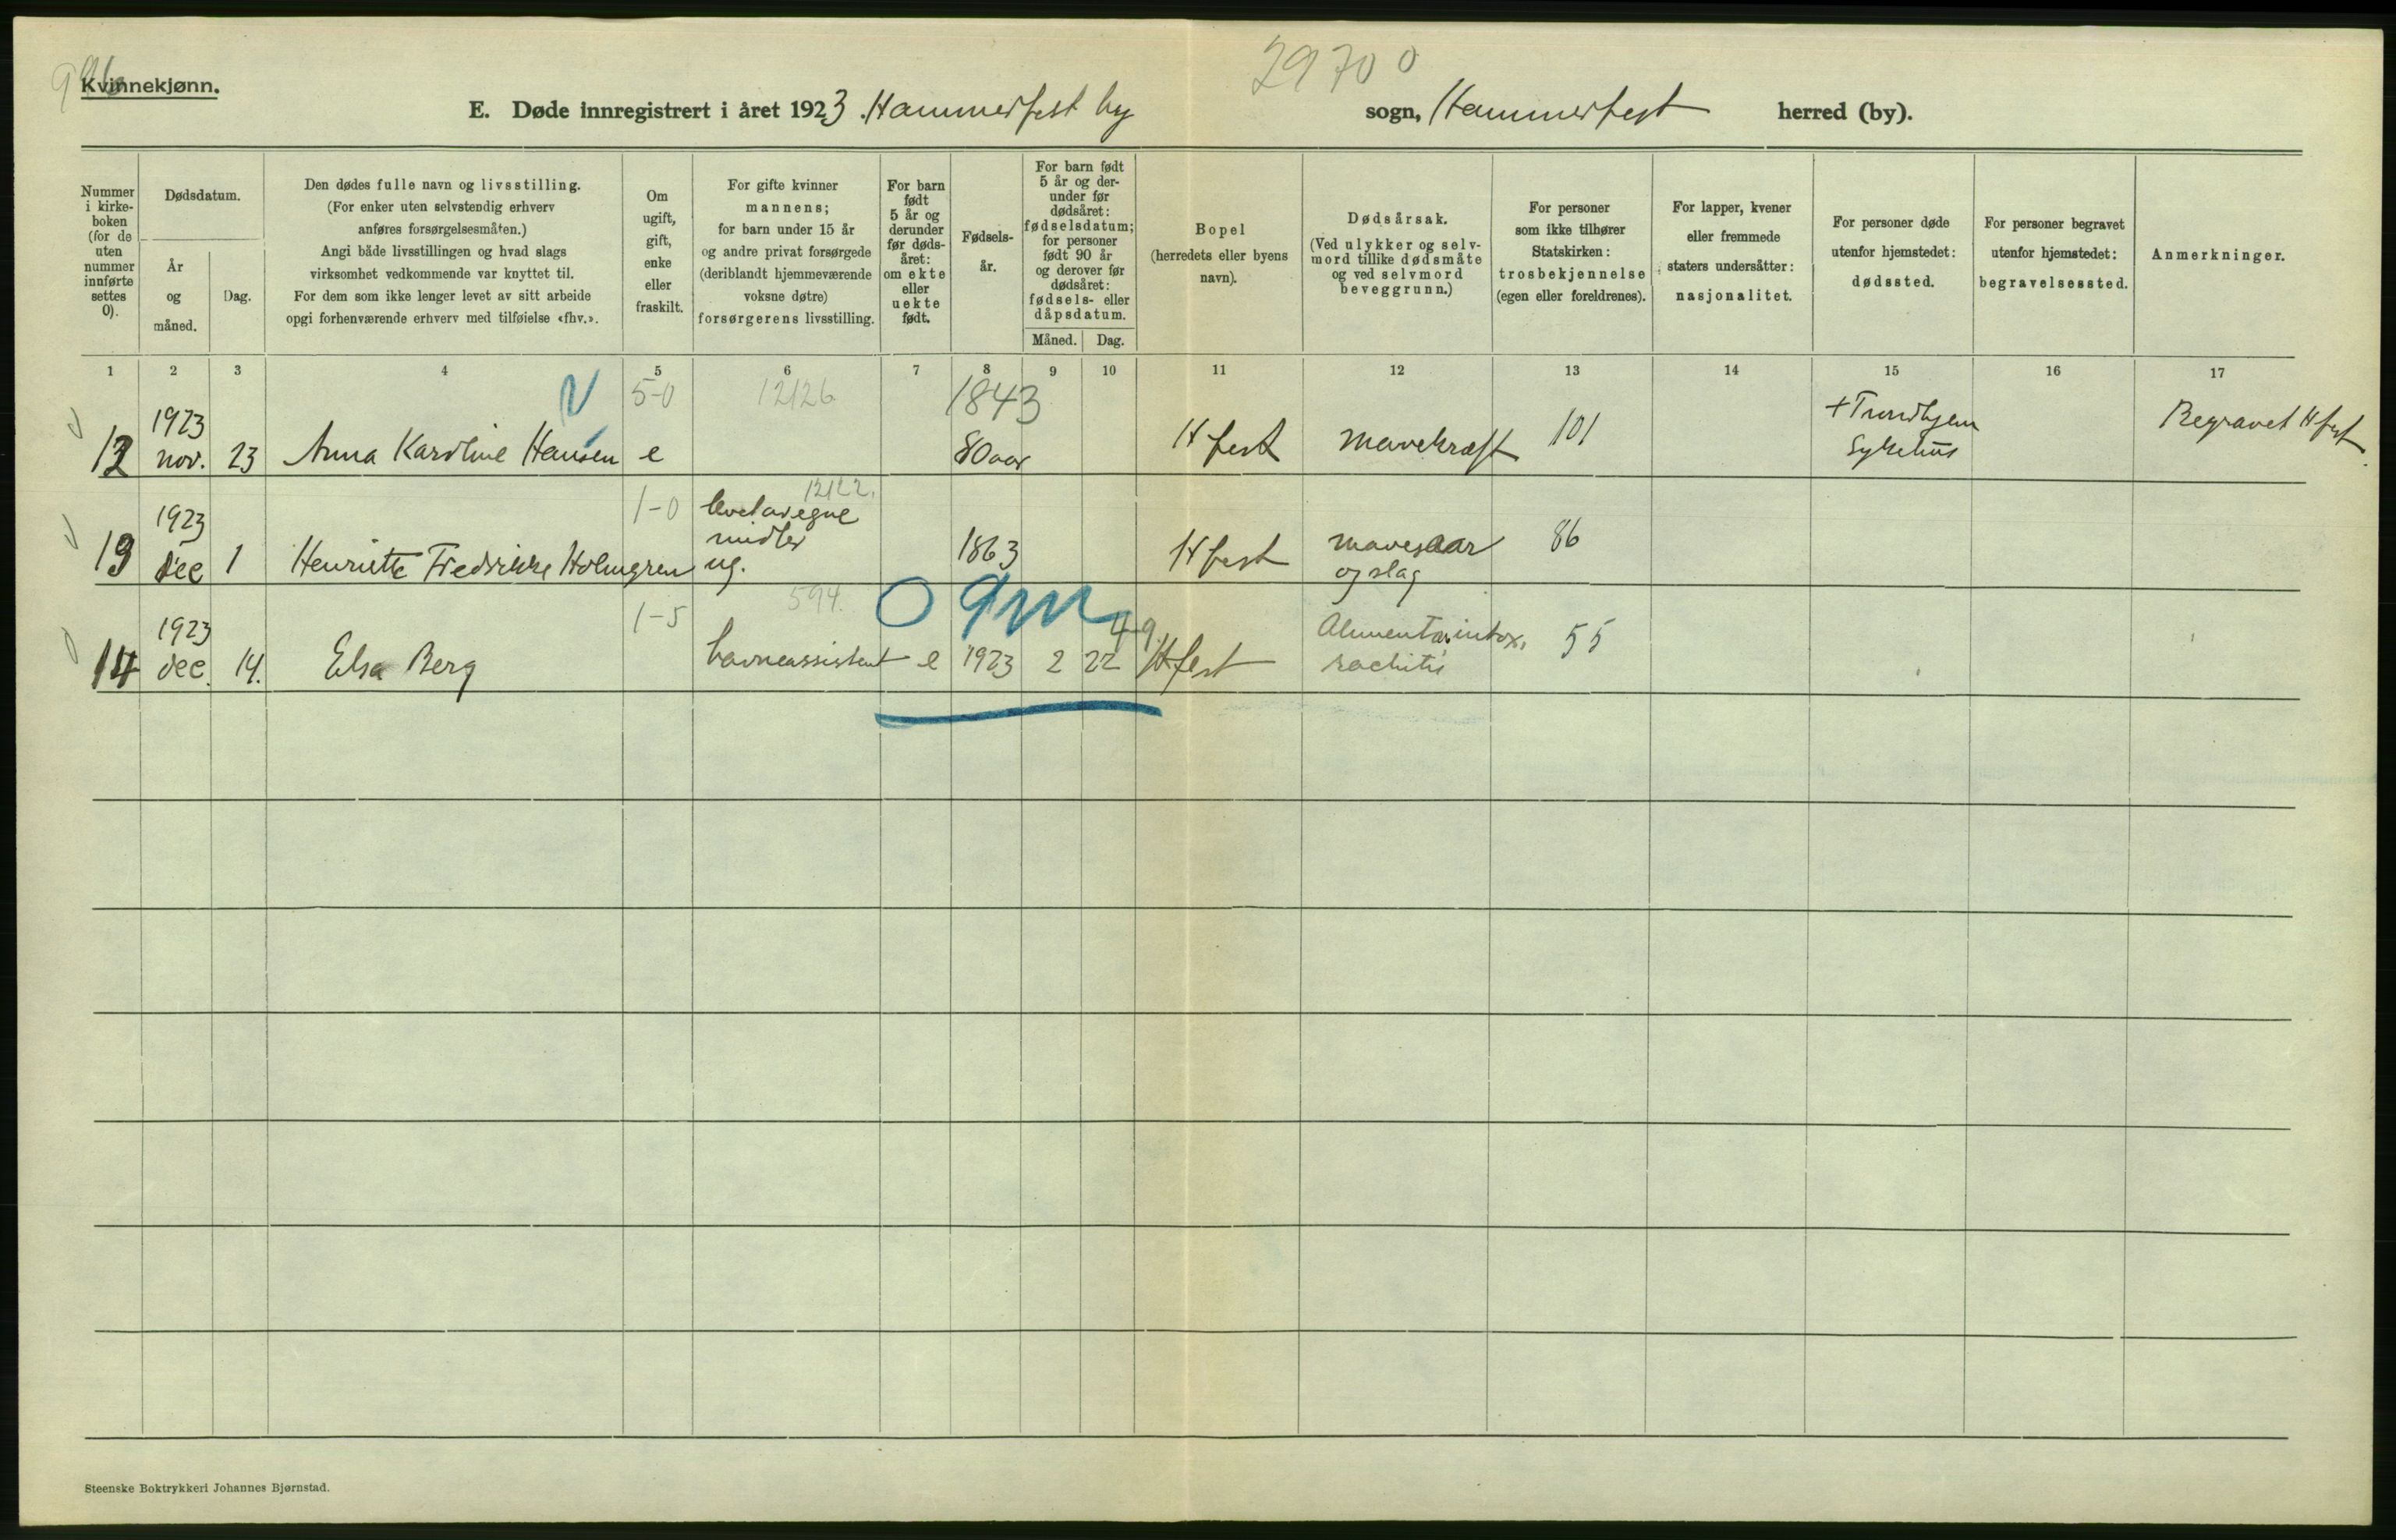 996
2970 0
Kvinnekjønn.
E. Døde innregistrert i året 1923. Hammerfest by sogn, Hammerfest herred (by).
Nummer i kirkeboken (for de uten nummer innførte settes 0).
Dødsdatum.
År og måned.
Dag.
Den dødes fulle navn og livsstilling.
(For enker uten selvstendig erhverv
anføres forsørgelsesmåten.)
Angi både livsstillingen og hvad slags
virksomhet vedkommende var knyttet til.
For dem som ikke lenger levet av sitt arbeide
opgi forhenværende erhverv med tilføielse «fhv.».
Om ugift, gift, enke eller fraskilt.
For gifte kvinner
mannens;
for barn under 15 år
og andre privat forsørgede
(deriblandt hjemmeværende
voksne døtre)
forsørgerens livsstilling.
For barn født 5 år og derunder før dødsåret: om ekte eller uekte født.
Fødselsår.
For barn født 5 år og derunder før dødsåret: fødselsdatum; for personer født 90 år og derover før dødsåret: fødsels- eller dåpsdatum.
Måned. Dag.
Bopel
(herredets eller byens
navn).
Dødsårsak.
(Ved ulykker og selvmord tillike dødsmåte og ved selvmord beveggrunn.)
For personer
som ikke tilhører
Statskirken:
trosbekjennelse
(egen eller foreldrenes).
For lapper, kvener
eller fremmede
staters undersåtter:
nasjonalitet.
For personer døde
utenfor hjemstedet:
dødssted.
For personer begravet
utenfor hjemstedet:
begravelsessted.
Anmerkninger.
1 2 3 4 5 6 7 8 9 10 11 12 13 14 15 16 17
5-0 12126 1843
12 1923 nov. 23 Anna Karoline Hansen e 80 aar H fest Mavekræft 101 + Trondhjem Sykehus Begravet H fest
1-0 12122.
13 1923 dec 1 Henriette Fredrikke Holmgren levet av egne midler ug. 1863 H fest mavesaar og slag 86
1-5 594. 0 9m 4-9.
14 1923 dec. 14. Elsa Berg havneassistent e 1923 2 22 H fest Alimentær intox. rachitis 55
Steenske Boktrykkeri Johannes Bjørnstad.